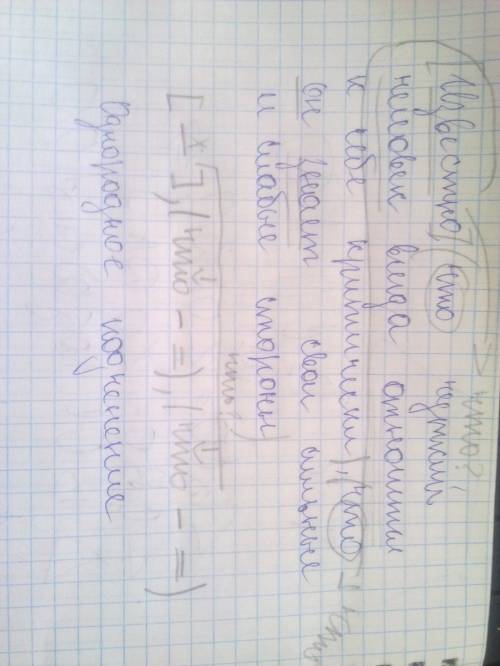 что?
[Известно], (что
человек всегда относится
к себе критически), (что
он знает свои сильные
и слабые стороны)
что?
[ х ], (что - =), (что - =)
Однородное подчинение